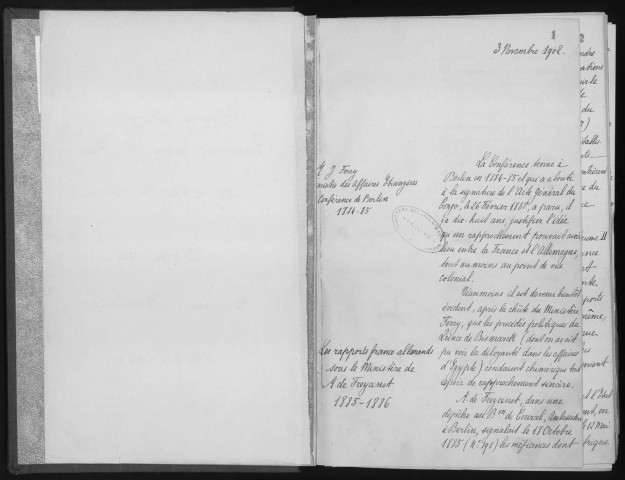 1
3 Novembre 1902.
M. J. Ferry
Ministre des Affaires Etrangères
Conférence de Berlin
1884-85
La Conférence tenue à
Berlin en 1884-85 et qui a abouti
à la signature de l'Acte Général du
Congo, le 26 Février 1885, a paru, il
y a dix-huit ans, justifier l'idée
qu'un rapprochement pouvait avoir
lieu entre la France et l'Allemagne,
tout au moins au point de vue
colonial.
Néanmoins il est devenu bientôt
évident, après la chûte du Ministère
Ferry, que les procédés politiques du
Prince de Bismarck (dont on avait
pu voir la déloyauté dans les affaires
d'Egypte) rendaient chimérique tout
espoir de rapprochement sincère.
Les rapports franco-allemands
sous le Ministère de
M. de Freycinet
1885-1886
M. de Freycinet, dans une
dépêche au Bon de Courcel, Ambassadeur
à Berlin, signalait le 18 Octobre
1885 (No 191) les méfiances dont